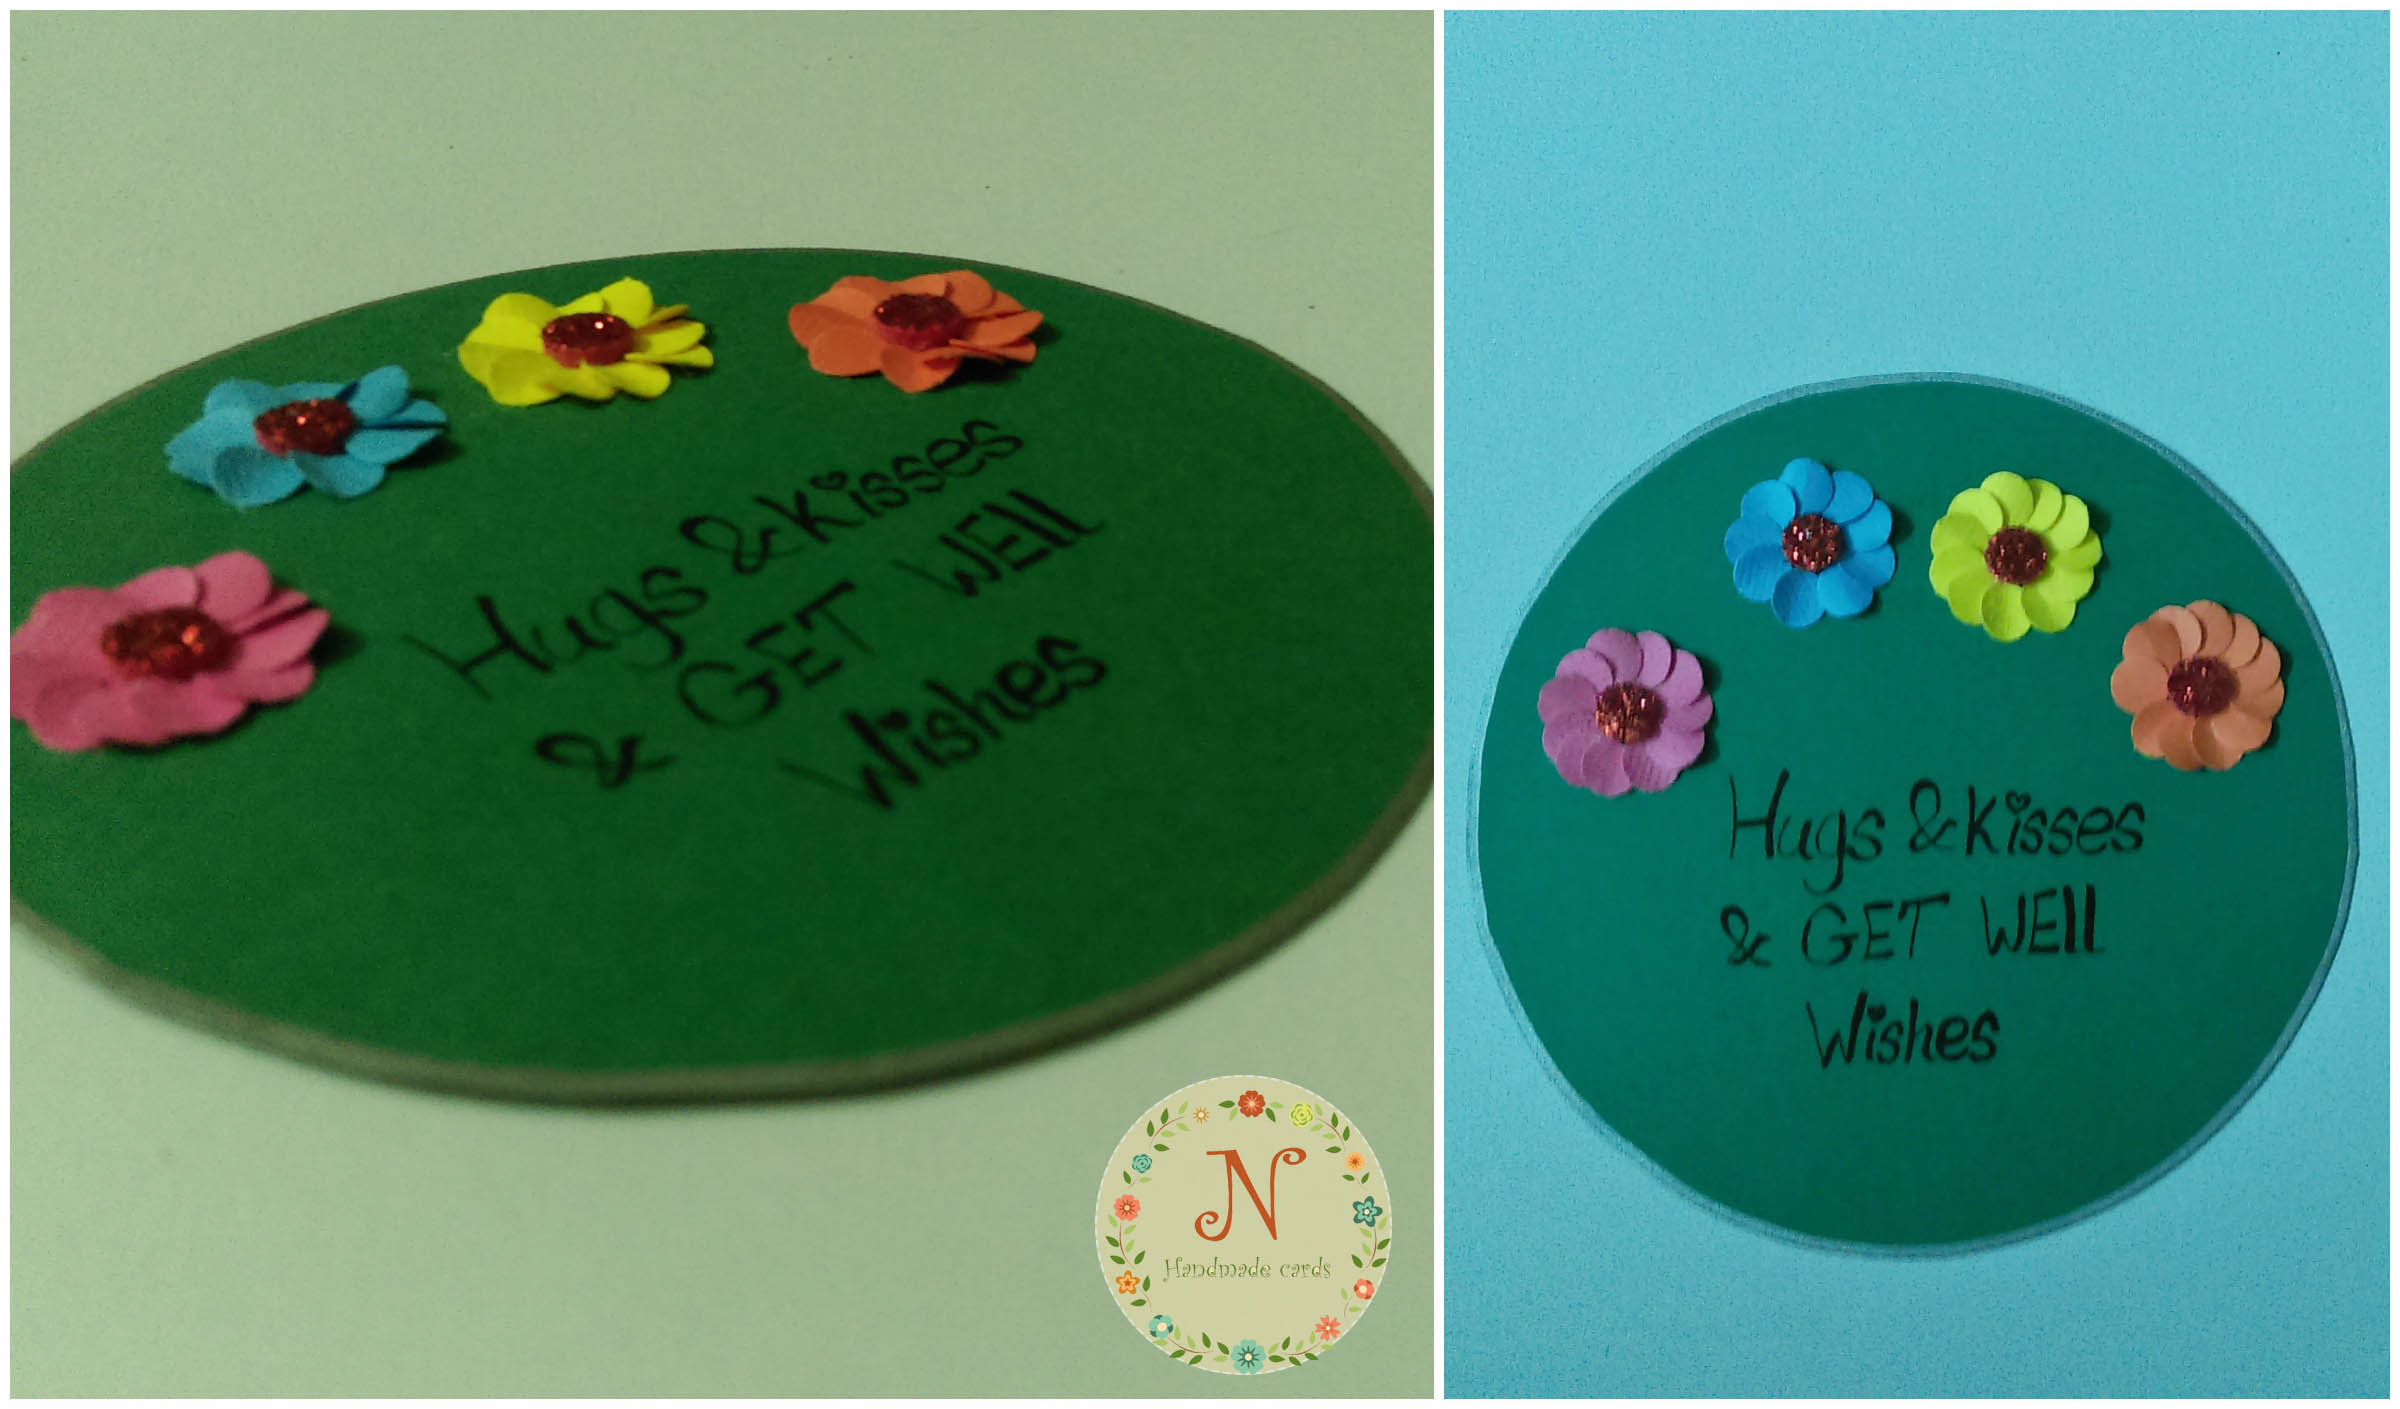 Hugs & Kisses
& GET WEll
Wishes
N
Handmade cards
Hugs & Kisses
& GET WEll
Wishes